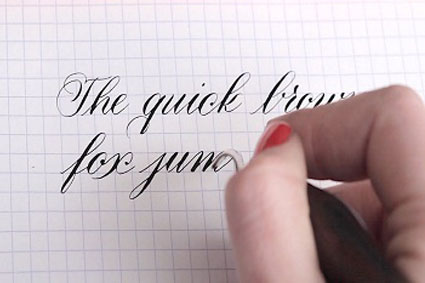 The quick brown
fox jum